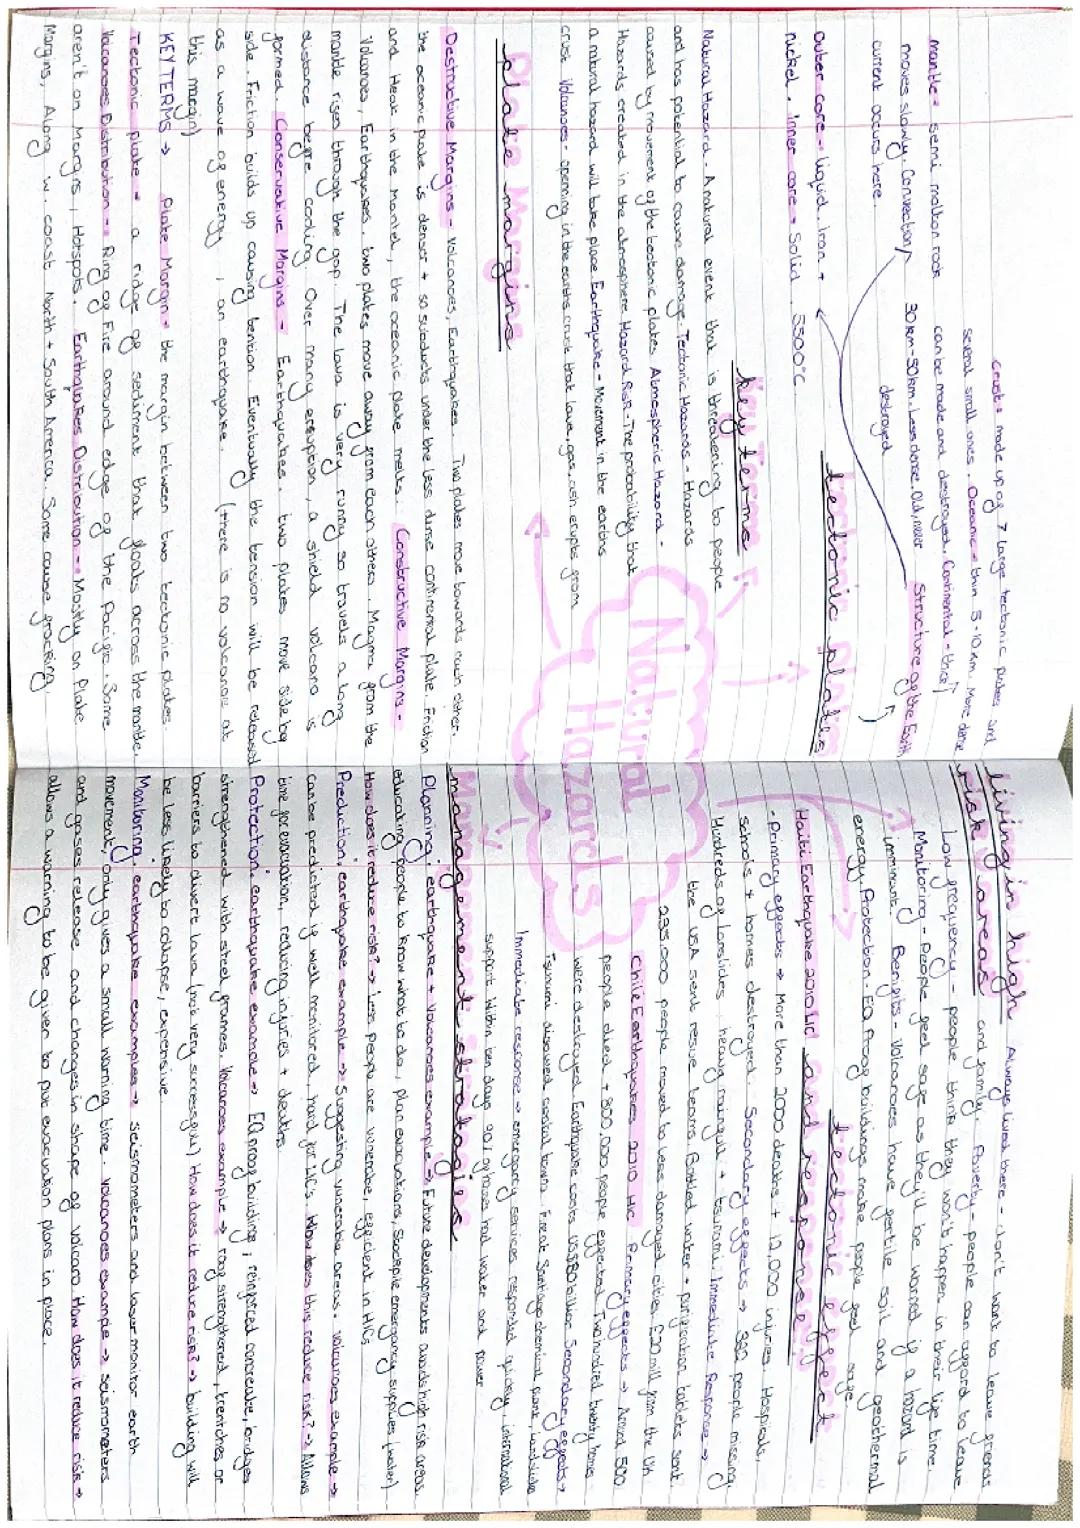 Crust = made up of 7 large tectonic plates and
several small ones. Oceanic = thin 5-10km. More dense
mantle = semi molton rock can be made and destroyed. Continental - thick
moves slowly. Convection 30km-50km. Less dense. Old, never
current occurs here. destroyed
Structure of the Earth
Outer core - liquid. Iron +
nickel. Inner core = Solid. 5500°C.
Tectonic Plates
Key Terms
Natural Hazard - A natural event that is threatening to people
and has potential to cause damage. Tectonic Hazards - Hazards
caused by movement of the tectonic plates Atmospheric Hazard -
Hazards created in the atmosphere Hazard Risk - The probability that
a natural hazard will take place. Earthquake - Movement in the earths
crust Volcanoes - opening in the earths crust that lava, gas, ash erupts from
Natural Hazards
Plate Margins
Destructive Margins - Volcanoes, Earthquakes. Two plates move towards each other.
the oceanic plate is denser + so subducts under the less dense continental plate. Friction
and Heat in the mantel, the oceanic plate melts. Constructive Margins -
Volcanoes, Earthquakes. two plates move away from each others. Magma from the
mantle rises through the gap. The lava is very runny so travels a long
distance before cooling. Over many eruption, a shield volcano is
formed. Conservative Margins - Earthquakes. two plates move side by
side. Friction builds up causing tention. Eventually the tension will be released
as a wave of energy, an earthquake. (there is no volcanoe at
this margin)
KEY TERMS → Plate Margin - the margin between two tectonic plates.
Tectonic plate - a ridge of sediment that floats across the mantle.
Volcanoes Distribution - Ring of Fire around edge of the Pacific. Some
aren't on Margins, Hotspots. Earthquakes Distribution - Mostly on Plate
Margins, Along w. coast North + South America. Some cause fracking.
living in high risk areas
Always lived there - don't want to leave friends
and family. Poverty - people can afford to leave
Low frequency - people think they won't happen in their life time.
Monitoring - People feel safe as they'll be warned if a hazard is
imminant. Benefits - Volcanoes have fertile soil and geothermal
energy. Protection - EQ Proof buildings make people feel safe
tectonic effect and response
Haiti Earthquake 2010 LIC
- Primary effects → More than 2000 deaths + 12,000 injuries. Hospitals,
schools + homes destroyed. Secondary effects → 380 people missing
Hundreds of landslides, heavy rainfall + tsunami. Immediate Response →
the USA sent resue teams. Bottled water + purification tablets sent.
235,000 people moved to less damaged cities, £20 mill from the UK
Chile Earthquakes 2010 HIC Primary effects → Around 500
people died + 800,000 people effected. Two hundred twenty homes
were destroyed. Earthquake costs US$30 billion Secondary effects →
Tsunami disowed coastal towns. Fire at Santiago chemical plant, landslides
Immediate response → emergancy services responded quickly, international
support. Within ten days 90% of homes had water and power
management stratagies
Planning, earthquake + volcanoes example → Future developmentes avoids high risk areas.
educating people to know what to do, plan evacuations, stockpile emergancy supplies (water)
How does it reduce risk? → Less people are vunerable, efficient in HICs
Prediction, earthquake example → Suggesting vunerable areas. volcanoes example →
can be predicted if well monitored, hard for LIC's. How does this reduce risk? → Allows
time for evacuation, reducing injuries + deaths
Protection, earthquake example → EQ proof building, reinforced concreate, bridges
strengthened with steel frames. Volcanoes example → roof strengthened, trentches or
barriers to divert lava (not very successful) How does it reduce risk? → building will
be less likely to collapse, expensive
Monitoring, earthquake examples → seismometers and laser monitor earth
movement, only gives a small warning time. volcanoes example → seismometers
and gases release and changes in shape of volcano How does it reduce risk →
allows a warning to be given to put evacuation plans in place.